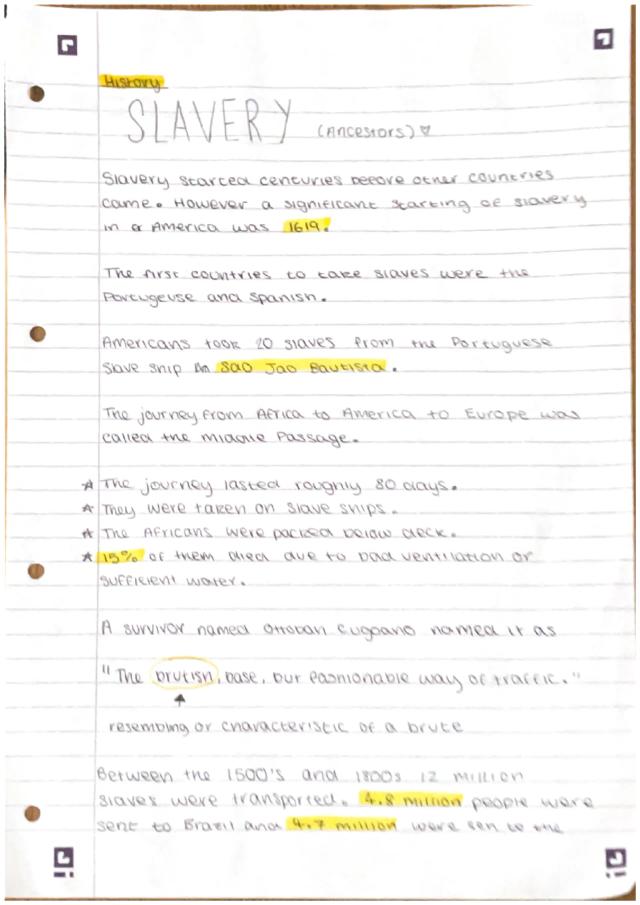 History
SLAVERY (Ancestors)
Slavery started centuries before other countries
came. However a significant starting of slavery
in a America was 1619.
The first countries to take slaves were the
Portugeuse and Spanish.
Americans took 20 slaves from the Portuguese
Slave ship in Sao Jao Bautista.
The journey from Africa to America to Europe was
called the middle Passage.
☆ The journey lasted roughly 80 days.
☆ They were taken on slave ships.
☆ The Africans were packed below deck.
☆ 15% of them died due to bad ventilation or
sufficient water.
A survivor named Ottoban Cugoano named it as
"The brutish, base, but fashionable way of traffic."
resembing or characteristic of a brute
Between the 1500's and 1800s 12 million
slaves were transported. 4.8 million people were
sent to Brazil and 4.7 million were sen to the